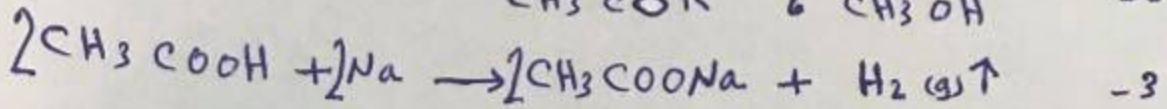 CH3OH
2CH3COOH + 2Na → 2CH3COONa + H2(g)↑ -3